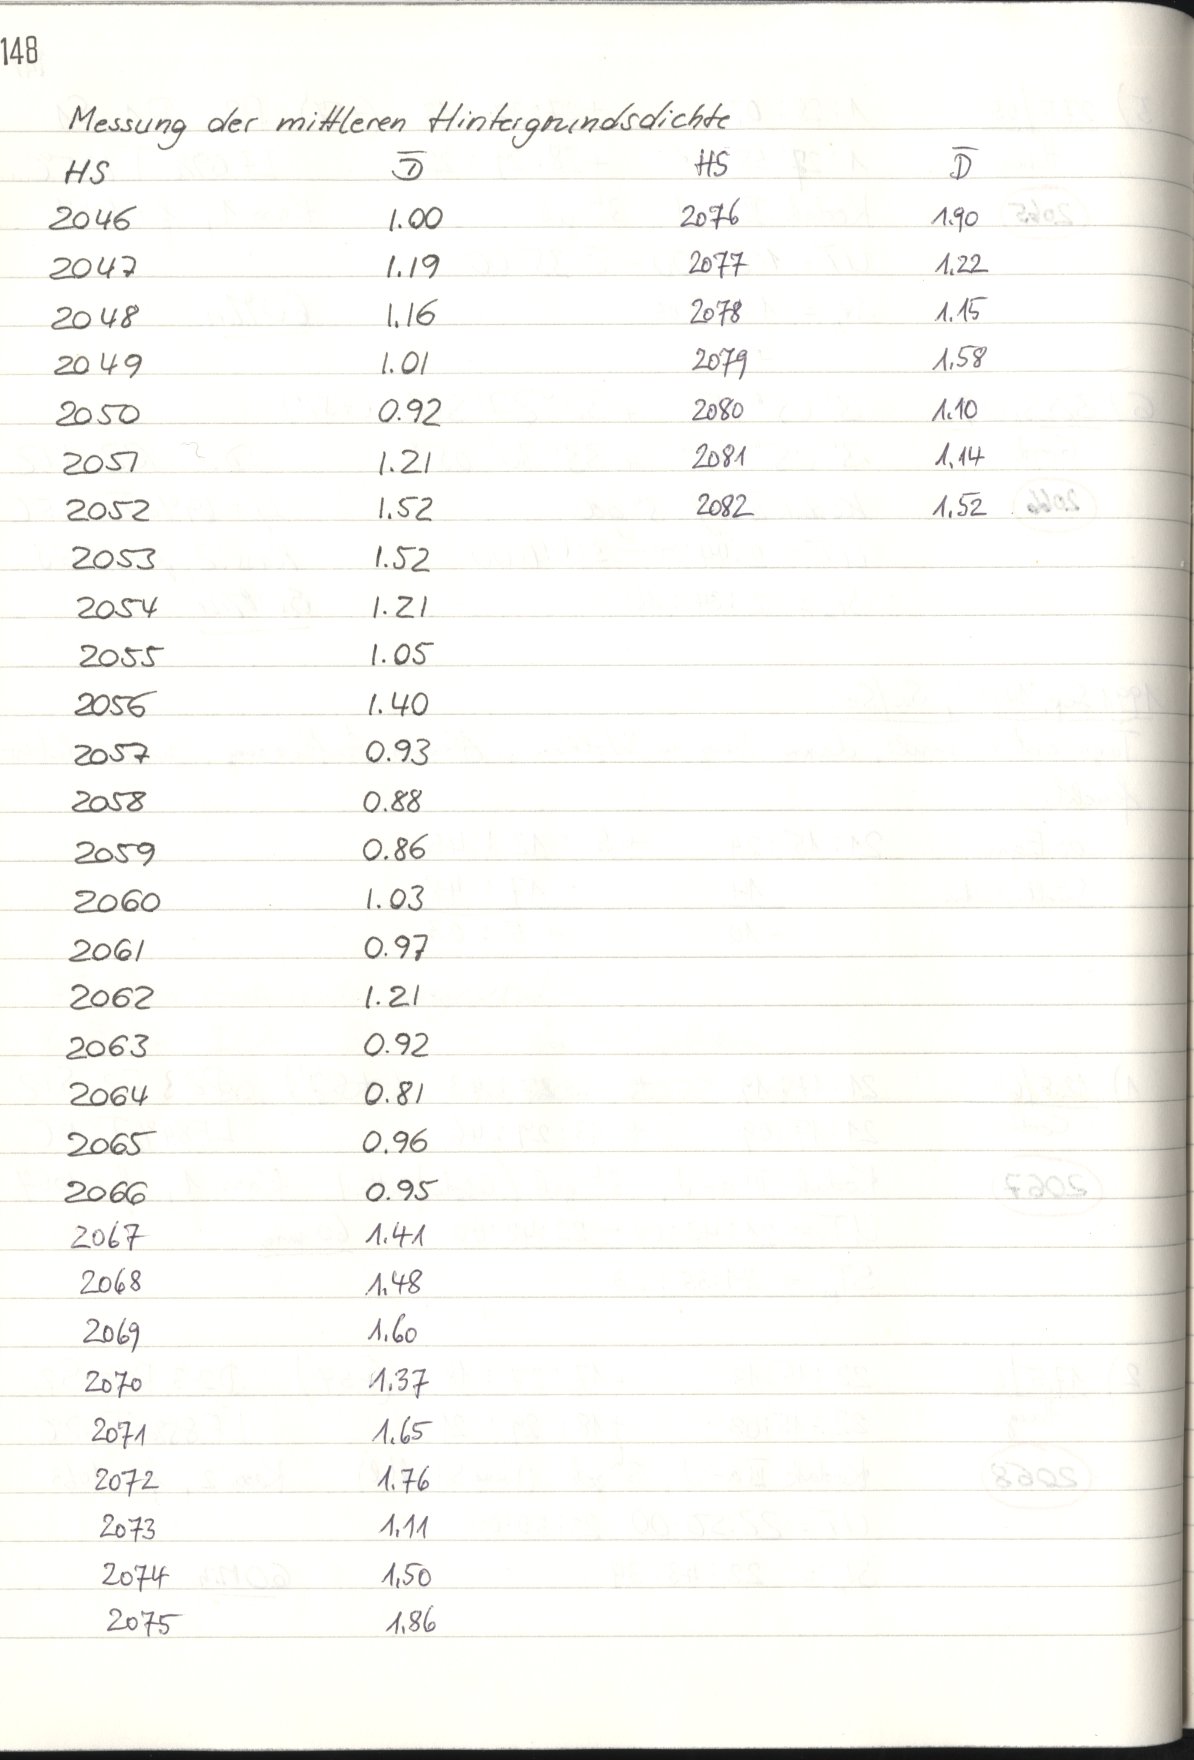 148
Messung der mittleren Hintergrundsdichte
HS D̅ HS D̅
2046 1.00 2076 1.90
2047 1.19 2077 1.22
2048 1.16 2078 1.15
2049 1.01 2079 1.58
2050 0.92 2080 1.10
2051 1.21 2081 1.14
2052 1.52 2082 1.52
2053 1.52
2054 1.21
2055 1.05
2056 1.40
2057 0.93
2058 0.88
2059 0.86
2060 1.03
2061 0.97
2062 1.21
2063 0.92
2064 0.81
2065 0.96
2066 0.95
2067 1.41
2068 1.48
2069 1.60
2070 1.37
2071 1.65
2072 1.76
2073 1.11
2074 1.50
2075 1.86